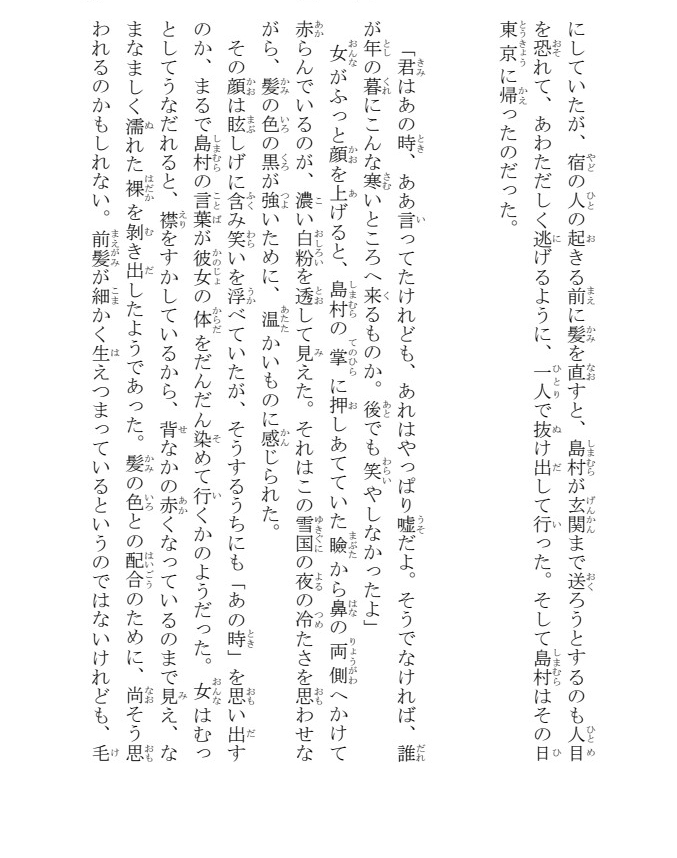 にしていたが、宿の人の起きる前に髪を直すと、島村が玄関まで送ろうとするのも人目
を恐れて、あわただしく逃げるように、一人で抜け出して行った。そして島村はその日
東京に帰ったのだった。
「君はあの時、ああ言ってたけれども、あれはやっぱり嘘だよ。そうでなければ、誰
が年の暮にこんな寒いところへ来るものか。後でも笑やしなかったよ」
女がふっと顔を上げると、島村の掌に押しあてていた瞼から鼻の両側へかけて
赤らんでいるのが、濃い白粉を透して見えた。それはこの雪国の夜の冷たさを思わせな
がら、髪の色の黒が強いために、温かいものに感じられた。
その顔は眩しげに含み笑いを浮べていたが、そうするうちにも「あの時」を思い出す
のか、まるで島村の言葉が彼女の体をだんだん染めて行くかのようだった。女はむっ
としてうなだれると、襟をすかしているから、背なかの赤くなっているのまで見え、な
まなましく濡れた裸を剝き出したようであった。髪の色との配合のために、尚そう思
われるのかもしれない。前髪が細かく生えつまっているというのではないけれども、毛